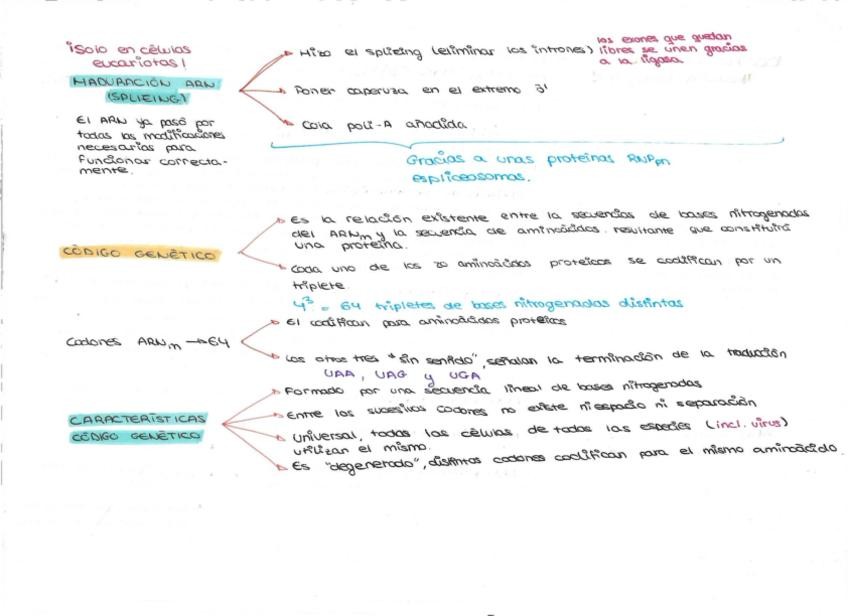 ¡Solo en células
eucariotas!
MADURACIÓN ARN
(SPLICING)
El ARN ya pasó por
todas las modificaciones
necesarias para
funcionar correcta-
mente.
Hizo el splicing (eliminar los intrones)
los exones que quedan
libres se unen gracias
a la ligasa
Poner caperuza en el extremo 3'
Cola poli-A añadida
Gracias a unas proteínas RNPpn
espliceosomas.
CÓDIGO GENÉTICO
Es la relación existente entre la secuencias de bases nitrogenadas
del ARNm y la secuencia de aminoácidos. resultante que constituirá
una proteína.
Cada uno de los 20 aminoácidos proteicos se codifican por un
triplete.
4³ = 64 tripletes de bases nitrogenadas distintas
Codones ARNm → 64
61 codifican para aminoácidos proteicos
Los otros tres "sin sentido", señalan la terminación de la traducción
UAA, UAG y UGA
CARACTERÍSTICAS
CÓDIGO GENÉTICO
Formado por una secuencia lineal de bases nitrogenadas
Entre los sucesivos codones no existe ni espacio ni separación
Universal, todas las células de todas las especies (incl. virus)
utilizan el mismo.
Es "degenerado", distintos codones codifican para el mismo aminoácido.